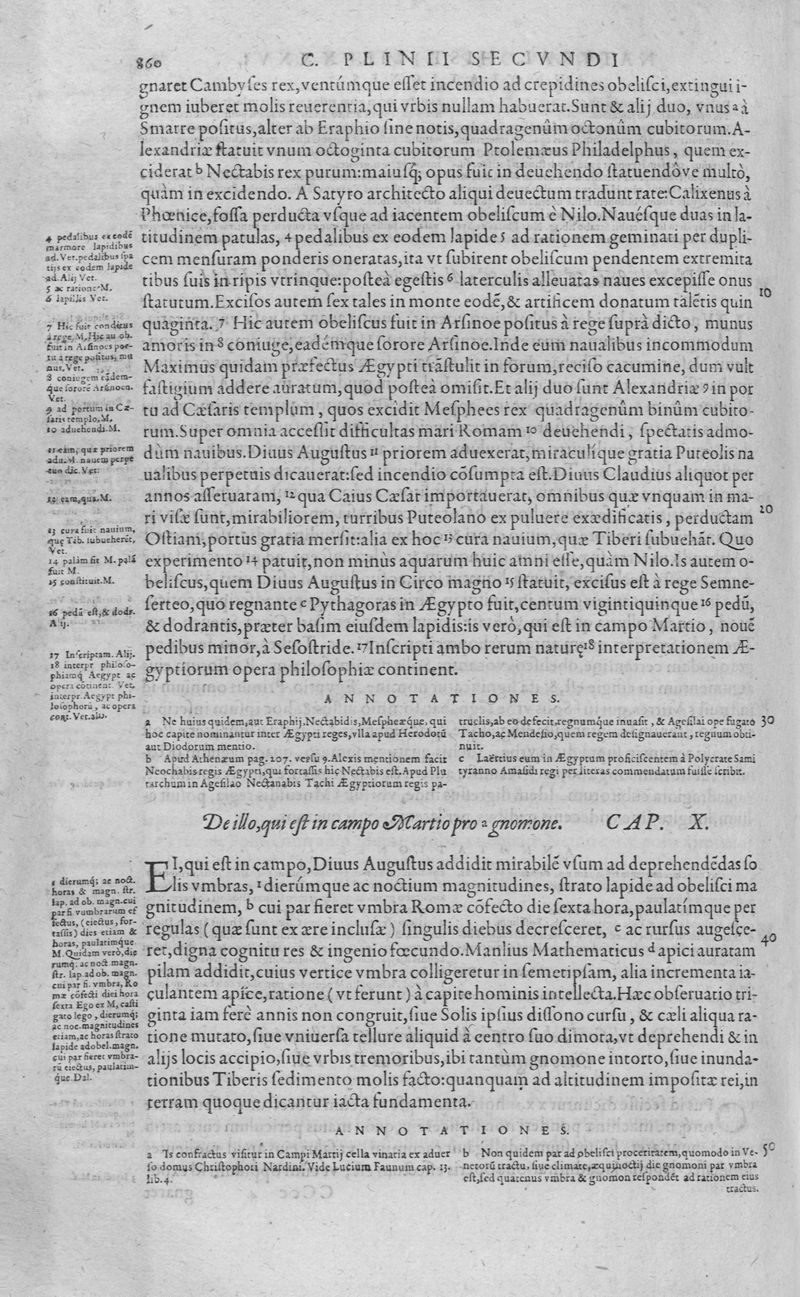 860
C. PLINII SECVNDI
gnaret Cambyſes rex, ventúmque eſſet incendio ad crepidines obeliſci, extingui i-
gnem iuberet molis reuerentia, qui vrbis nullam habuerat. Sunt & alij duo, vnus ᵃ à
Smarre poſitus, alter ab Eraphio ſine notis, quadragenûm octonûm cubitorum. A-
lexandriæ ſtatuit vnum octoginta cubitorum Ptolemæus Philadelphus, quem ex-
ciderat ᵇ Nectabis rex purum: maiuſq; opus fuit in deuehendo ſtatuendóve multò,
quàm in excidendo. A Satyro architecto aliqui deuectum tradunt rate: Calixenus à
Phœnice, foſſa perducta vſque ad iacentem obeliſcum è Nilo. Nauéſque duas in la-
titudinem patulas, 4 pedalibus ex eodem lapide 5 ad rationem geminati per dupli-
cem menſuram ponderis oneratas, ita vt ſubirent obeliſcum pendentem extremita
tibus ſuis in ripis vtrinque: poſteà egeſtis 6 laterculis alleuatas naues excepiſſe onus
ſtatutum. Exciſos autem ſex tales in monte eodē, & artificem donatum talētis quin
10
quaginta. 7 Hic autem obeliſcus fuit in Arſinoe poſitus à rege ſuprà dicto, munus
amoris in 8 coniuge, eadémque ſorore Arſinoe. Inde eum naualibus incommodum
Maximus quidam præfectus Ægypti trāſtulit in forum, reciſo cacumine, dum vult
faſtigium addere auratum, quod poſteà omiſit. Et alij duo ſunt Alexandriæ 9 in por
tu ad Cæſaris templum, quos excidit Meſphees rex quadragenûm binûm cubito-
rum. Super omnia acceſſit difficultas mari Romam 10 deuehendi, ſpectatis admo-
dùm nauibus. Diuus Auguſtus 11 priorem aduexerat, miraculíque gratia Puteolis na
ualibus perpetuis dicauerat: ſed incendio cōſumpta eſt. Diuus Claudius aliquot per
annos aſſeruatam, 12 qua Caius Cæſar importauerat, omnibus quæ vnquam in ma-
ri viſæ ſunt, mirabiliorem, turribus Puteolano ex puluere exædificatis, perductam
20
Oſtiani, portùs gratia merſit: alia ex hoc 13 cura nauium, quæ Tiberi ſubuehāt. Quo
experimento 14 patuit, non minùs aquarum huic amni eſſe, quàm Nilo. Is autem o-
beliſcus, quem Diuus Auguſtus in Circo magno 15 ſtatuit, exciſus eſt à rege Semne-
ſerteo, quo regnante ᶜ Pythagoras in Ægypto fuit, centum vigintiquinque 16 pedū,
& dodrantis, præter baſim eiuſdem lapidis: is verò, qui eſt in campo Martio, nouē
pedibus minor, à Seſoſtride. 17 Inſcripti ambo rerum naturę 18 interpretationem Æ-
gyptiorum opera philoſophiæ continent.
4 pedalibus ex eodē
marmore lapidibus
ad. Vet. pedalibus ſpa
tijs ex eodem lapide
ad. Alij Vet.
5 ac ratione M.
6 lapillis Vet.
7 Hic fuit conditus
à rege, M. Hic au ob.
fuit in Arſinoes por-
tu à rege poſitus, mu
nus. Vet.
8 coniugem eādem-
que ſororē Arſinoen.
Vet.
9 ad portum in Cæ-
ſaris templo, M.
10 aduehendi. M.
11 eam, quæ priorem
adu. M. nauem perpe
tuo dic. Vet.
12 eam, qua. M.
13 cura fuit nauium,
quę Tib. ſubueherēt.
Vet.
14 palàm fit M. palā
fuit M.
15 conſtituit. M.
16 pedū eſt, & dodr.
Alij.
17 Inſcriptam. Alij.
18 interpr philoſo-
phiamq; Aegypt ac
opera cōtinent Vet.
interpr. Aegypt phi-
loſophorū, ac opera
cont. Vet. aliū.
ANNOTATIONES.
a Ne huius quidem, aut Eraphij, Nectabidis, Meſpheæque, qui
hoc capite nominantur inter Ægypti reges, vlla apud Herodotū
aut Diodorum mentio.
b Apud Athenæum pag. 207. verſu 9. Alexis mentionem facit
Neochabis regis Ægypti, qui fortaſſis hic Nectabis eſt. Apud Plu
tarchum in Ageſilao Nectanabis Tachi Ægyptiorum regis pa-
truelis, ab eo defecit, regnumque inuaſit, & Ageſilai ope fugato
30
Tacho, ac Mendeſio, quem regem deſignauerant, regnum obti-
nuit.
c Laërtius eum in Ægyptum proficiſcentem à Polycrate Sami
tyranno Amaſidi regi per literas commendatum fuiſſe ſcribit.
De illo, qui eſt in campo Martio pro ᵃ gnomone. CAP. X.
EI, qui eſt in campo, Diuus Auguſtus addidit mirabilē vſum ad deprehendēdas ſo
lis vmbras, 1 dierúmque ac noctium magnitudines, ſtrato lapide ad obeliſci ma
gnitudinem, ᵇ cui par fieret vmbra Romæ cōfecto die ſexta hora, paulatímque per
regulas (quæ ſunt ex ære incluſæ) ſingulis diebus decreſceret, ᶜ ac rurſus augeſce-
40
ret, digna cognitu res & ingenio fœcundo. Manlius Mathematicus ᵈ apici auratam
pilam addidit, cuius vertice vmbra colligeretur in ſemetipſam, alia incrementa ia-
culantem apice, ratione (vt ferunt) à capite hominis intellecta. Hæc obſeruatio tri-
ginta iam ferè annis non congruit, ſiue Solis ipſius diſſono curſu, & cæli aliqua ra-
tione mutato, ſiue vniuerſa tellure aliquid à centro ſuo dimota, vt deprehendi & in
alijs locis accipio, ſiue vrbis tremoribus, ibi tantùm gnomone intorto, ſiue inunda-
tionibus Tiberis ſedimento molis facto: quanquam ad altitudinem impoſitæ rei, in
terram quoque dicantur iacta fundamenta.
1 dierumq; ac noct.
horas & magn. ſtr.
lap. ad ob. magn. cui
par fi. vumbrarum ef
fectus, (eiectus, for-
taſſis) dies etiam &
horas, paulatimque
M. Quidam verò, die
rumq. ac noct magn.
ſtr. lap. ad ob. magn.
cui par fi. vmbra, Ro
mæ cōfecti diei hora
ſexta Ego ex M. caſti
gato lego, dierumq;
ac noc. magnitudines
etiam, ac horas ſtrato
lapide ad obel. magn.
cui par fieret vmbra-
rū eiectus, paulatim-
que. Dal.
ANNOTATIONES.
a Is confractus viſitur in Campi Martij cella vinaria ex aduer
ſo domus Chriſtophori Nardini. Vide Lucium Faunum cap. 13.
lib. 4.
b Non quidem par ad obeliſci proceritatem, quomodo in Ve-
50
netorū tractu, ſiue climate, æquinoctij die gnomoni par vmbra
eſt, ſed quatenus vmbra & gnomon reſpondēt ad rationem eius
tractus.